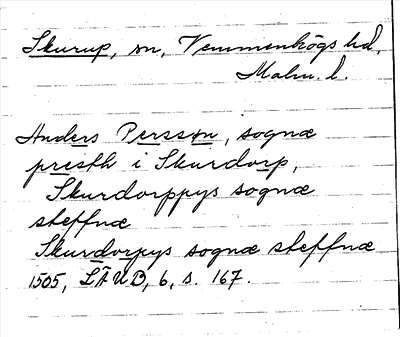 Skurup, sn, Vemmenhögs hd,
Malm. l.
Anders Persson, sognæ
presth i Skurdorp,
Skurdorppys sognæ
steffnæ
Skurdorpys sognæ steffnæ
1505, LÄUB, 6, s. 167.